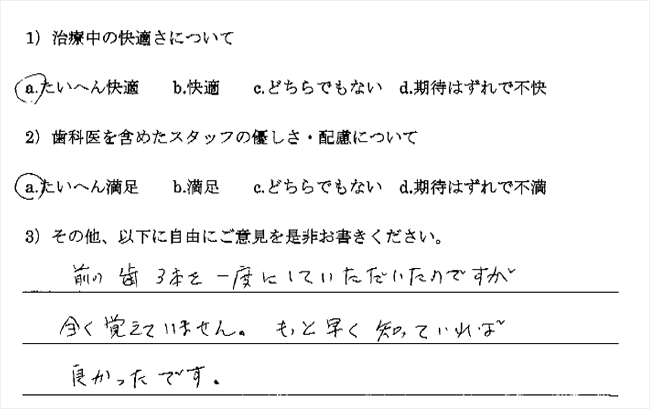 1）治療中の快適さについて
a.たいへん快適 b.快適 c.どちらでもない d.期待はずれで不快
2）歯科医を含めたスタッフの優しさ・配慮について
a.たいへん満足 b.満足 c.どちらでもない d.期待はずれで不満
3）その他、以下に自由にご意見を是非お書きください。
前の歯3本を一度にしていただいたのですが
全く覚えていません。もっと早く知っていれば
良かったです。